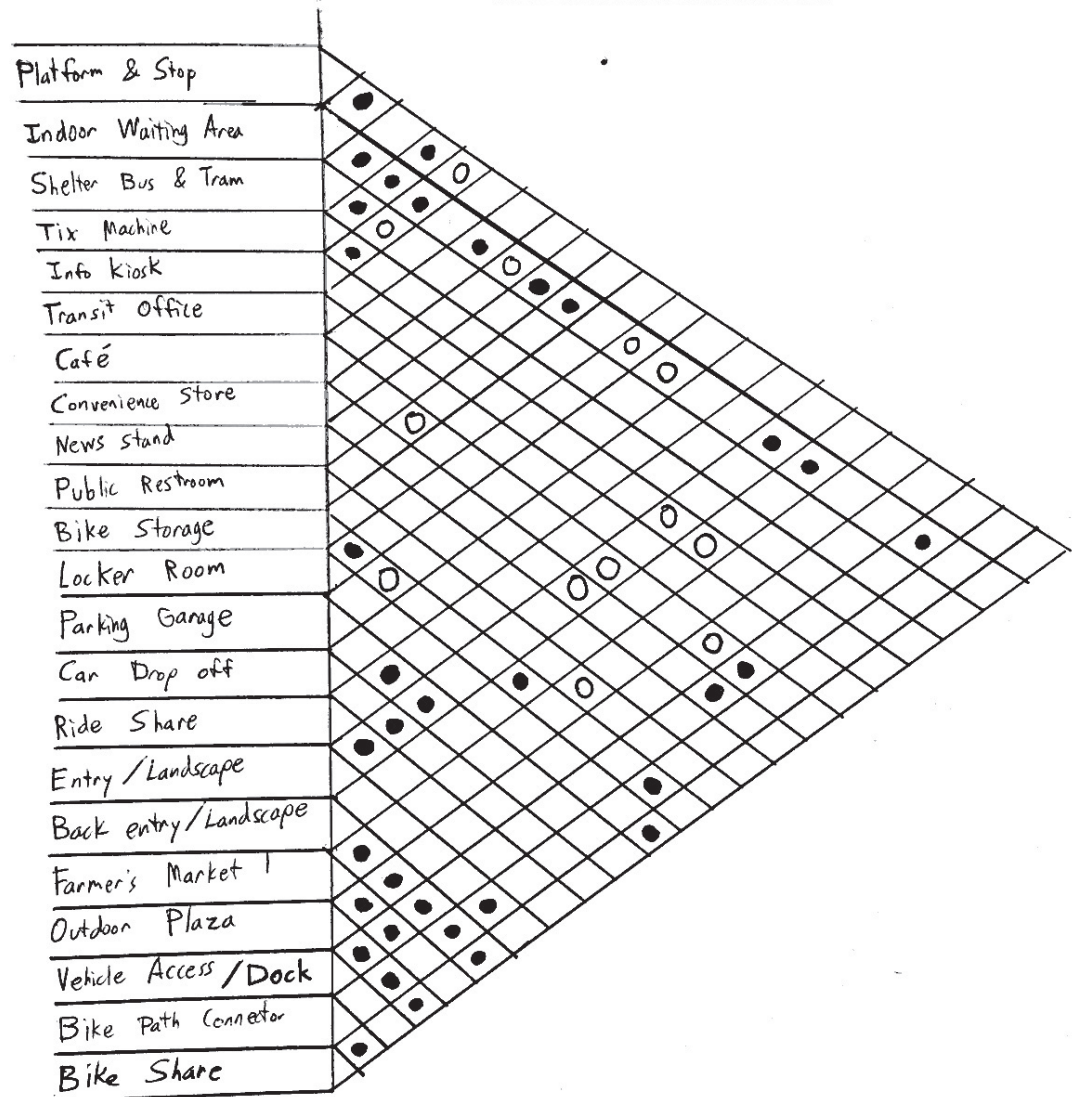 Platform & Stop
Indoor Waiting Area
Shelter Bus & Tram
Tix Machine
Info Kiosk
Transit Office
Café
Convenience Store
News Stand
Public Restroom
Bike Storage
Locker Room
Parking Garage
Car Drop off
Ride Share
Entry/Landscape
Back entry/Landscape
Farmer's Market
Outdoor Plaza
Vehicle Access/Dock
Bike Path Connector
Bike Share